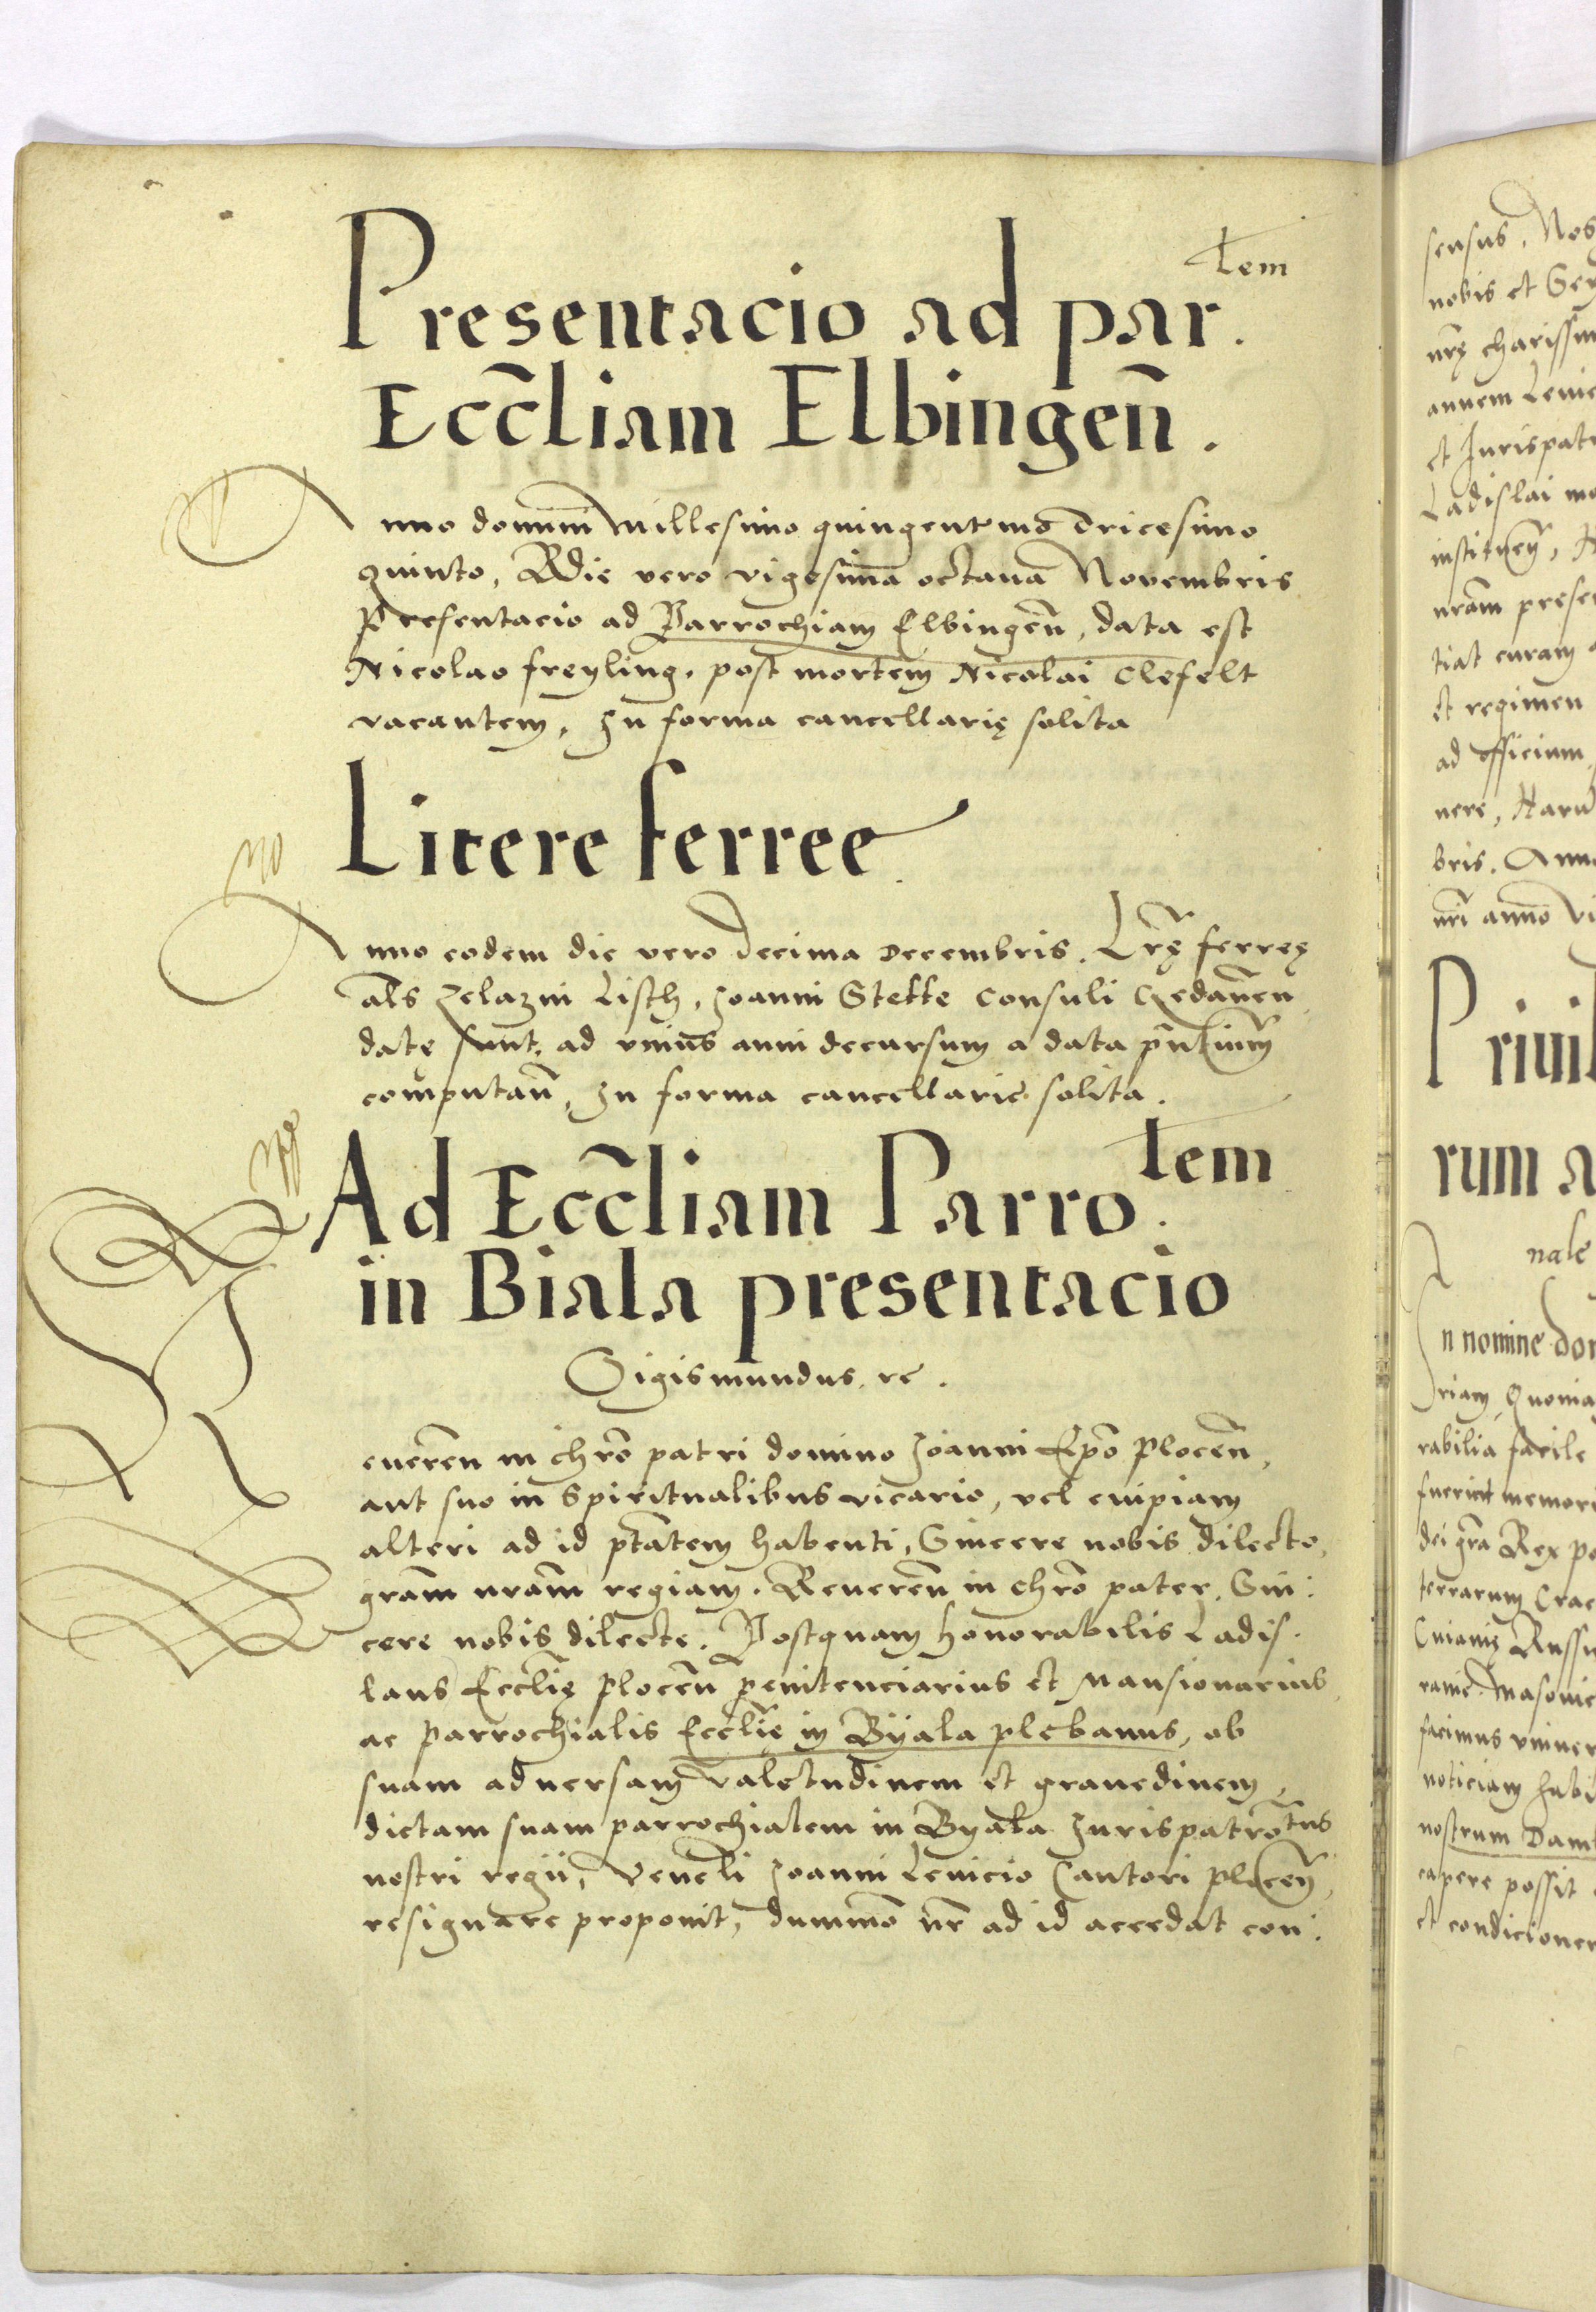 Presentacio ad par.tem
Eccl̄iam Elbingen̄.
Anno domini Millesimo quingentesimo Tricesimo
quinto, Die vero vigesima octaua Novembris
Presentacio ad Parrochiam Elbingen̄, data est
Nicolao freyling, post mortem Nicolai Clefelt
vacantem, In forma cancellarię solita
Litere ferree
Anno eodem die vero Decima Decembris. Lr̄ę ferreę
al̄s Zelazni Listh, Joanni Stette Consuli Gedanen̄
datę sunt, ad vnius anni decursum a data pn̄tium
computan̄, In forma cancellarie solita.
Ad Eccl̄iam Parro.tem
in Biala presentacio
Sigismundus. rc.
Reueren̄ in chr̄o patri domino Joanni Ep̄o Plocen̄,
aut suo in Spiritualibus vicario, vel cuipiam
alteri ad id pt̄atem habenti, Sincere nobis dilecto,
gram̄ nram̄ regiam. Reueren̄ in chr̄o pater, Sin:
cere nobis dilecte. Postquam honorabilis Ladis:
laus Eccl̄ię Plocen̄ penitenciarius et Mansionarius,
ac parrochialis Eccl̄ię in Byala plebanus, ob
suam aduersam valetudinem et grauedinem,
dictam suam parrochialem in Byala Jurispatro̅tus
nostri regii, Ven̄eli Joanni Leuicio Cantori Plocen̄,
resignare proponit, dummo̅ nr̄ ad id accedat con:
sensus, Nos
nobis et
nr̄ę charissim
annem Leuic
et Jurispatr
Ladislai
instituen̄,
nram̄ presen
tiat curam
et regimen
ad officium
nere, Haru
bris. Anno
nr̄i anno vi
Priuil
rum a
nale
In nomine
riam, Quonia
rabilia facile
fuerint memori
dei gr̄a Rex po
terrarum Crac
Cuiauię Russi
ranie. Masouie
facimus vniuer
noticiam habit
nostrum Dam
capere possit
et condicionem